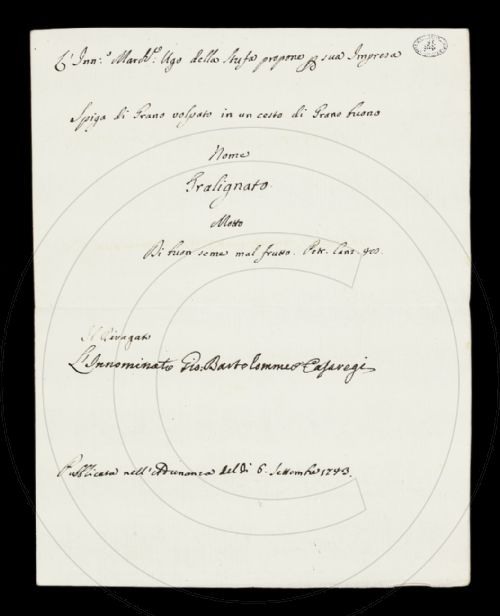 L'Inn:o March:e Ugo della Stufa propone p sua Impresa
Spiga di Grano volpato in un cesto di Grano buono
Nome
Tralignato.
Motto
Di buon seme mal frutto. Petr. Canz.
Il Divagato
L'Innominato Gio: Bartolommeo Casaregi
Pubblicata nell'Adunanza del dì 6. Settembre